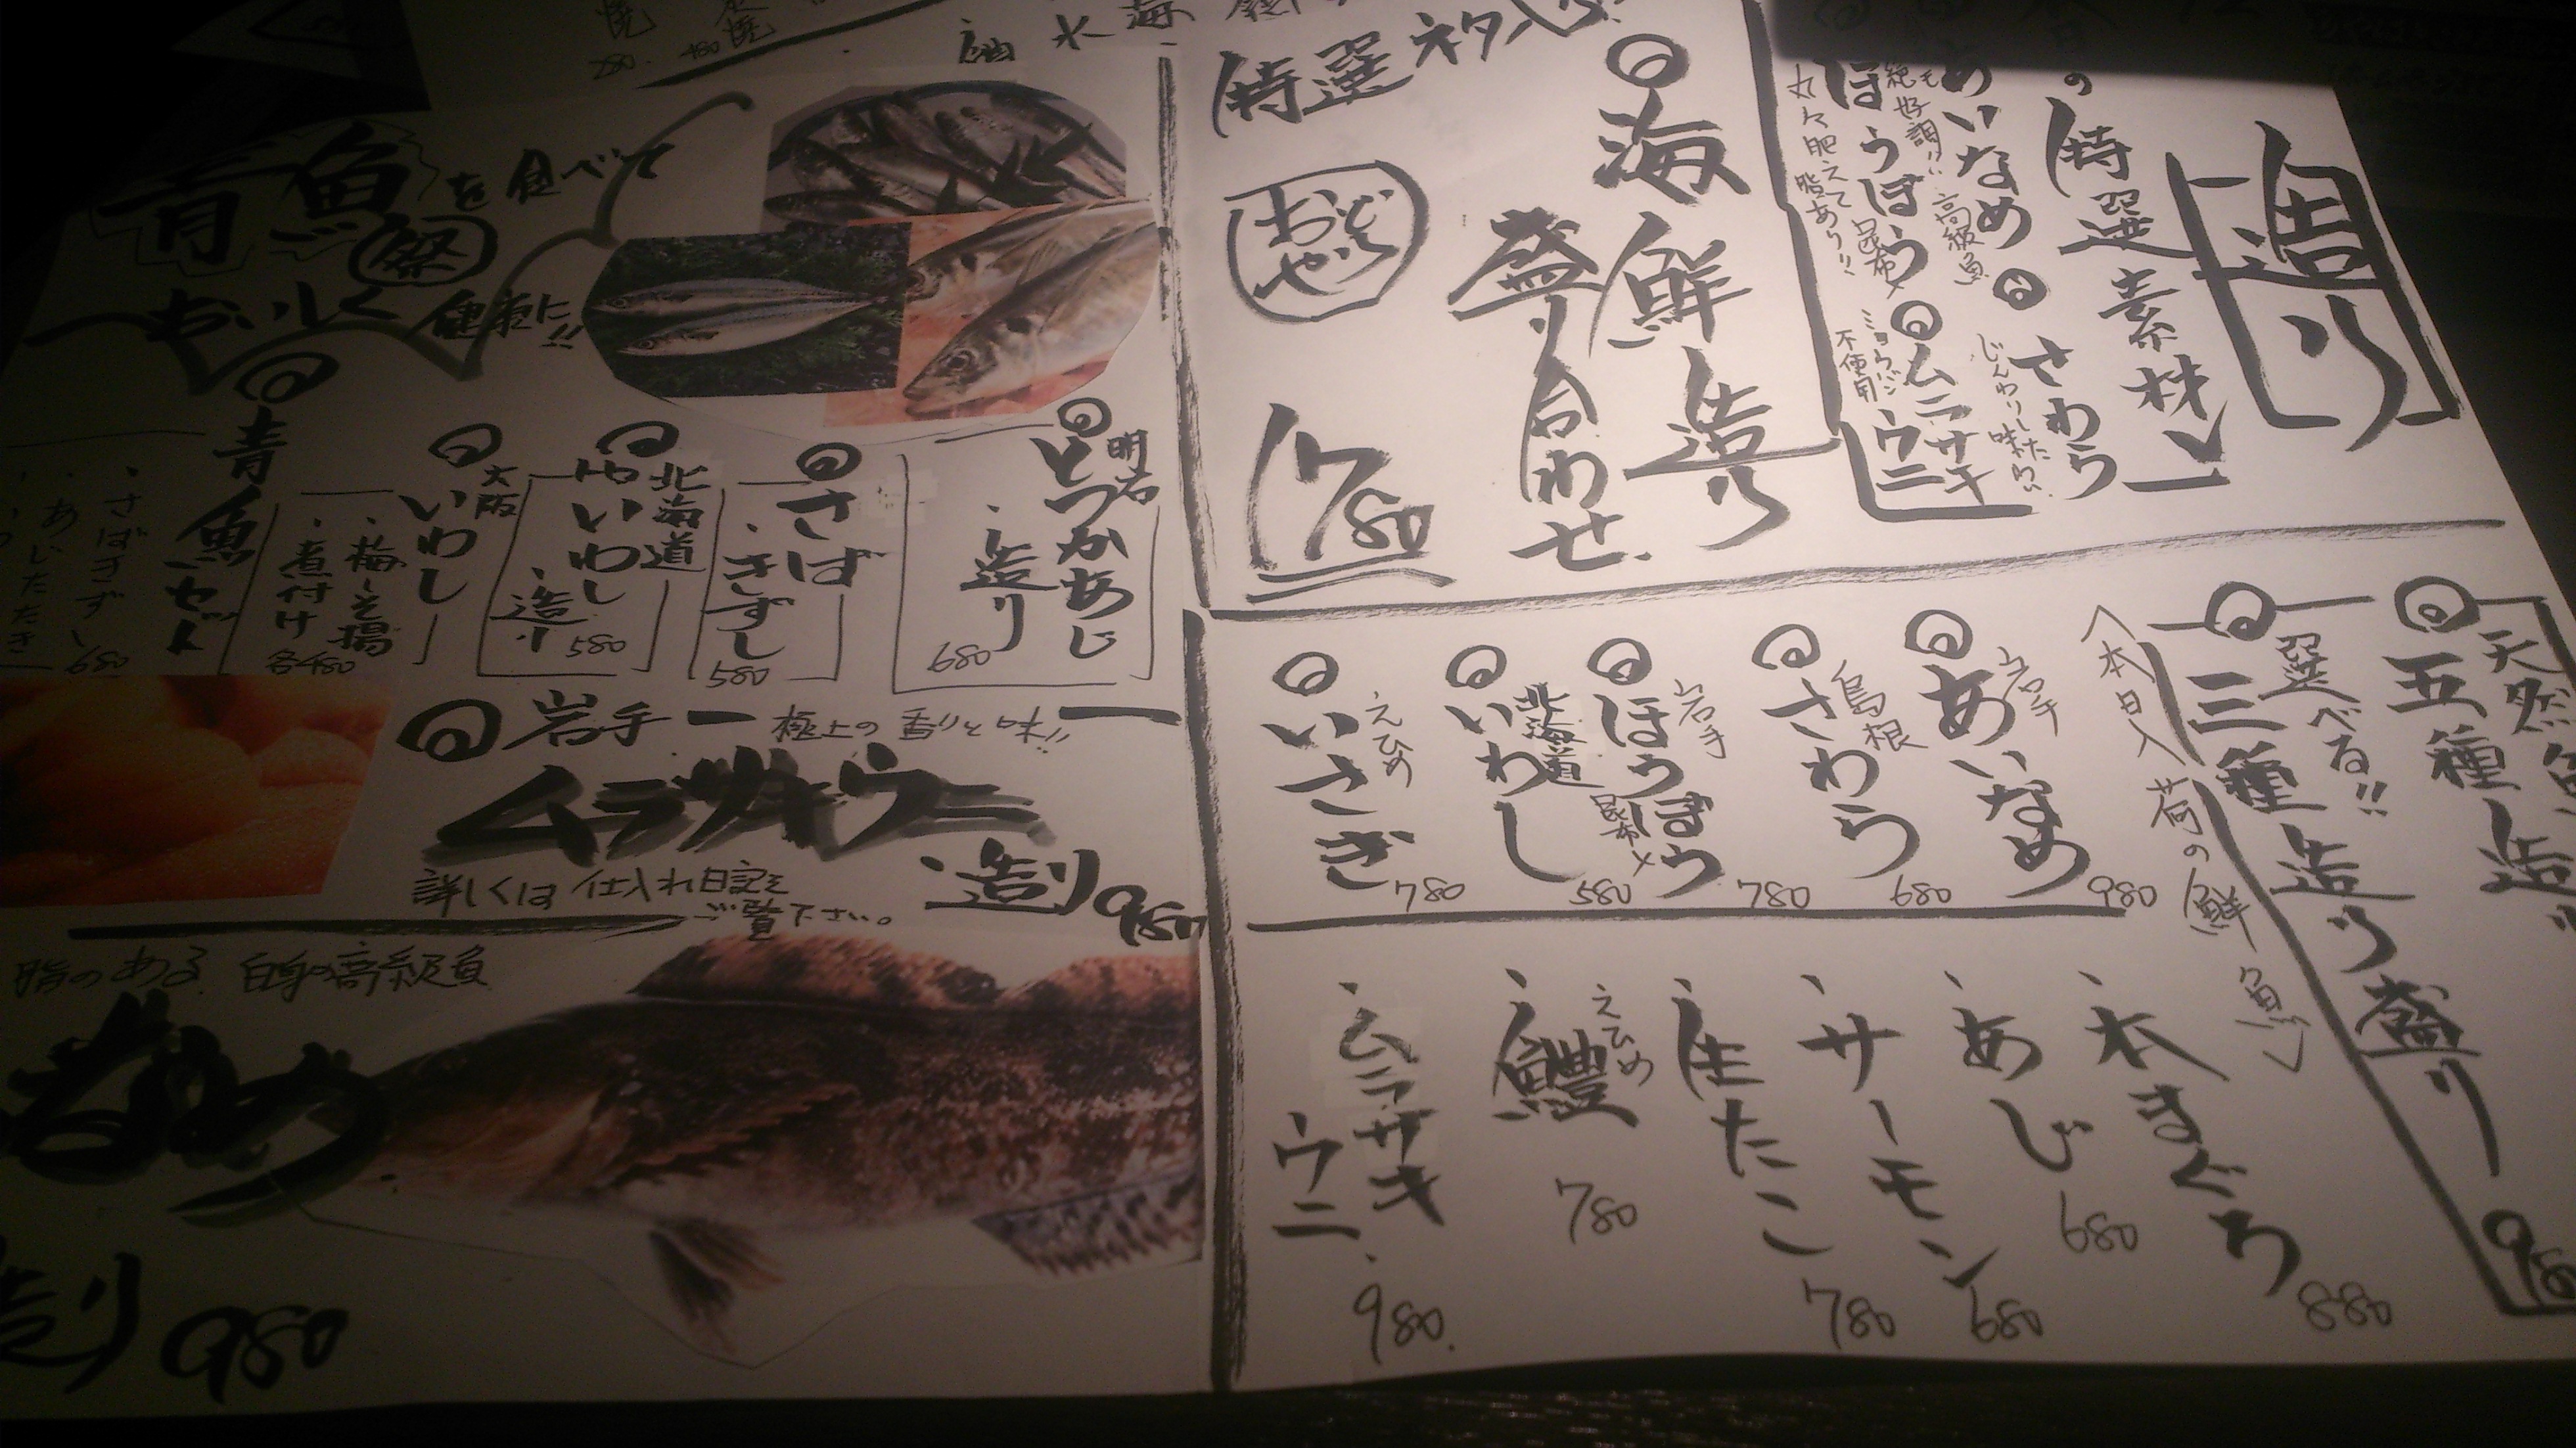 造り
特選素材
さわら
じんわりした味わい
あいなめ
絶好調!! 高級魚
ムラサキウニ
ミョウバン不使用
ほうぼう
丸々肥えて脂あり!!
特選ネタ入り
海鮮造り
盛り合わせ
1780
天然
五種造り
選べる!!
三種造り盛り
980
〈本日入荷の鮮魚〉
岩手
あいなめ
980
島根
さわら
680
岩手
ほうぼう
昆布〆
780
北海道
いわし
580
えひめ
いさぎ
780
、本まぐろ
880
、あじ
680
、サーモン
680
、生たこ
780
えひめ
、鱧
780
、ムラサキウニ
980
青魚を食べて
祭
健康に!!
明石
とつかあじ
・造り
680
さば
・きずし
580
北海道
いわし
・造り
580
大阪
いわし
・梅しそ揚
・煮付け
各480
青魚セット
・さばきずし
・あじたたき
680
岩手
極上の香りと味!!
ムラサキウニ
・造り 980
詳しくは仕入れ日記を
ご覧下さい。
脂のある 白身の高級魚
造り 980